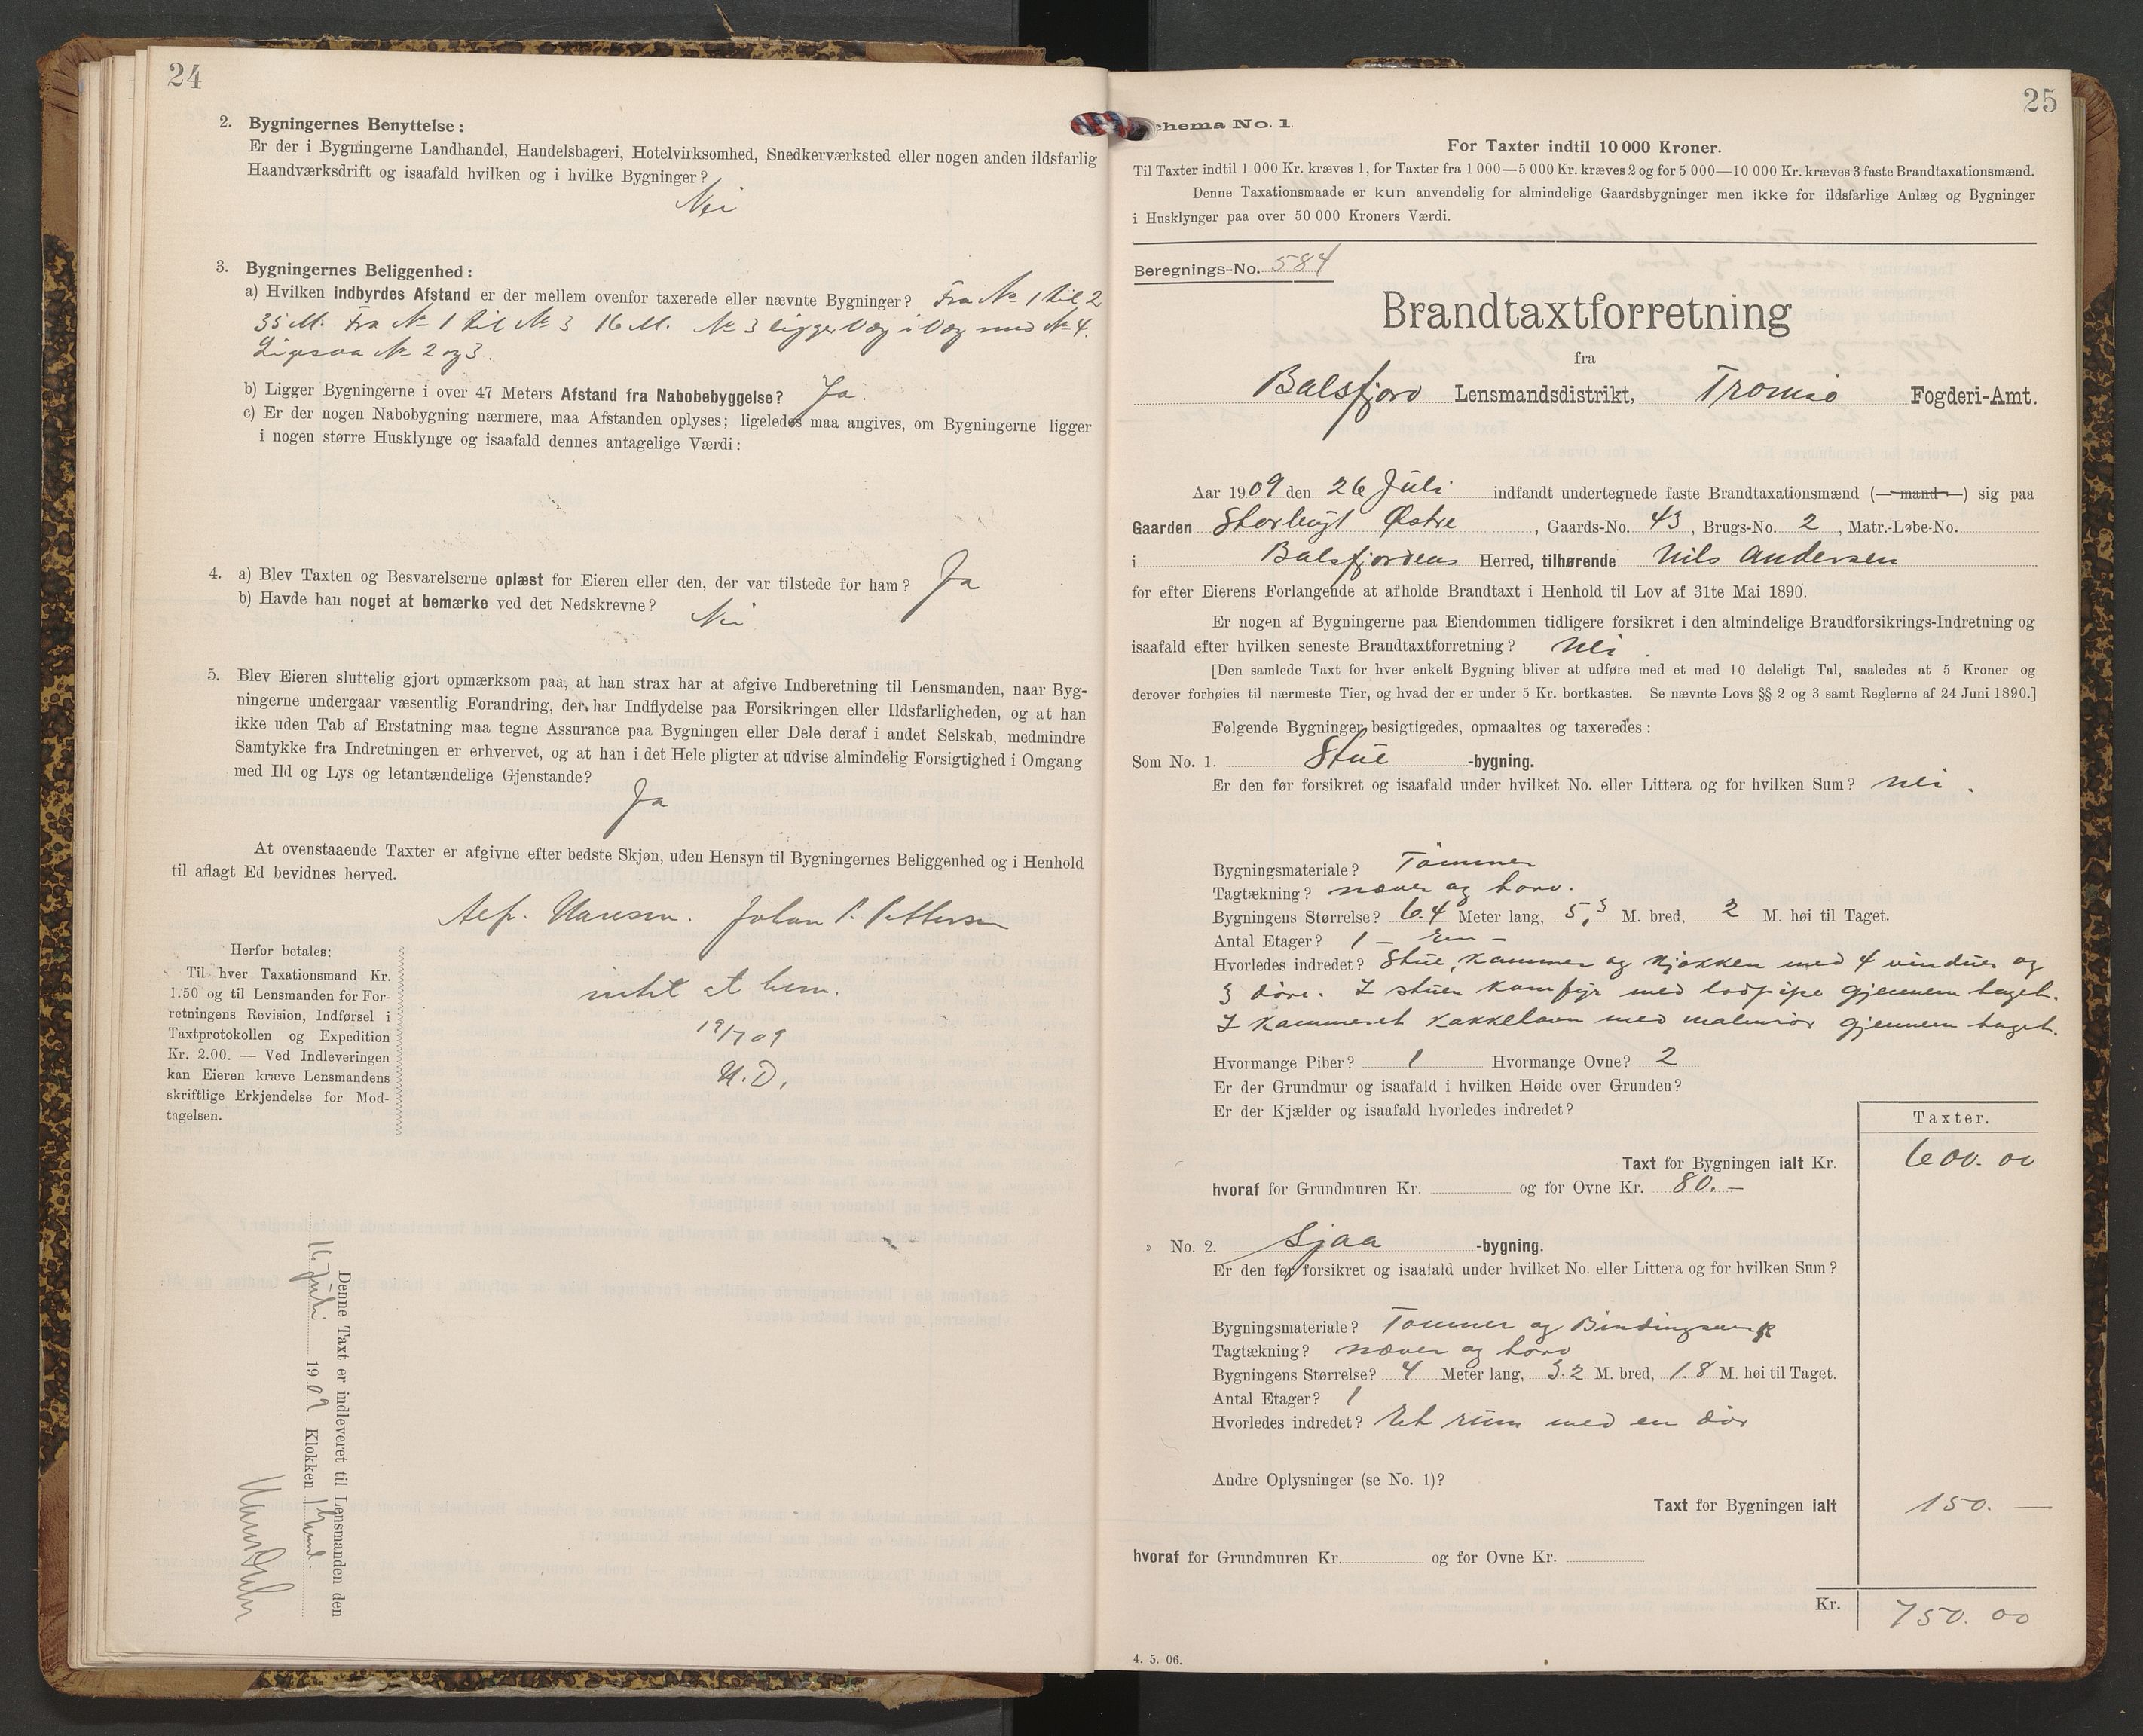 24
2. Bygningernes Benyttelse:
Er der i Bygningerne Landhandel, Handelsbageri, Hotelvirksomhed, Snedkerværksted eller nogen anden ildsfarlig
Haandværksdrift og isaafald hvilken og i hvilke Bygninger?
Nei
3. Bygningernes Beliggenhed:
a) Hvilken indbyrdes Afstand er der mellem ovenfor taxerede eller nævnte Bygninger? Fra No 1 til 2
35 M. Fra No 1 til No 3 16 M. No 3 ligger Væg i Væg med No 4.
Ligesaa No 2 og 3.
b) Ligger Bygningerne i over 47 Meters Afstand fra Nabobebyggelse? Ja.
c) Er der nogen Nabobygning nærmere, maa Afstanden oplyses; ligeledes maa angives, om Bygningerne ligger
i nogen større Husklynge og isaafald dennes antagelige Værdi:
4. a) Blev Taxten og Besvarelserne oplæst for Eieren eller den, der var tilstede for ham? Ja
b) Havde han noget at bemærke ved det Nedskrevne? Nei
5. Blev Eieren sluttelig gjort opmærksom paa, at han strax har at afgive Indberetning til Lensmanden, naar Byg-
ningerne undergaar væsentlig Forandring, der har Indflydelse paa Forsikringen eller Ildsfarligheden, og at han
ikke uden Tab af Erstatning maa tegne Assurance paa Bygningen eller Dele deraf i andet Selskab, medmindre
Samtykke fra Indretningen er erhvervet, og at han i det Hele pligter at udvise almindelig Forsigtighed i Omgang
med Ild og Lys og letantændelige Gjenstande?
Ja
At ovenstaaende Taxter er afgivne efter bedste Skjøn, uden Hensyn til Bygningernes Beliggenhed og i Henhold
til aflagt Ed bevidnes herved.
Hansen. Johan P. Pettersen
intet at bem.
19/7 09
H. D.
Herfor betales:
Til hver Taxationsmand Kr.
1.50 og til Lensmanden for For-
retningens Revision, Indførsel i
Taxtprotokollen og Expedition
Kr. 2.00. — Ved Indleveringen
kan Eieren kræve Lensmandens
skriftlige Erkjendelse for Mod-
tagelsen.
Denne Taxt er indleveret til Lensmanden den
16 Juli 1909 Klokken
25
Schema No. 1.
For Taxter indtil 10 000 Kroner.
Til Taxter indtil 1 000 Kr. kræves 1, for Taxter fra 1 000—5 000 Kr. kræves 2 og for 5 000—10 000 Kr. kræves 3 faste Brandtaxationsmænd.
Denne Taxationsmaade er kun anvendelig for almindelige Gaardsbygninger men ikke for ildsfarlige Anlæg og Bygninger
i Husklynger paa over 50 000 Kroners Værdi.
Beregnings-No. 584
Brandtaxtforretning
fra
Balsfjord Lensmandsdistrikt, Tromsø Fogderi-Amt.
Aar 1909 den 26 Juli indfandt undertegnede faste Brandtaxationsmænd (—mand—) sig paa
Gaarden Storbugt Østre, Gaards-No. 43, Brugs-No. 2, Matr.-Løbe-No.
i Balsfjordens Herred, tilhørende Nils Andersen
for efter Eierens Forlangende at afholde Brandtaxt i Henhold til Lov af 31te Mai 1890.
Er nogen af Bygningerne paa Eiendommen tidligere forsikret i den almindelige Brandforsikrings-Indretning og
isaafald efter hvilken seneste Brandtaxtforretning? Nei.
[Den samlede Taxt for hver enkelt Bygning bliver at udføre med et med 10 deleligt Tal, saaledes at 5 Kroner og
derover forhøies til nærmeste Tier, og hvad der er under 5 Kr. bortkastes. Se nævnte Lovs §§ 2 og 3 samt Reglerne af 24 Juni 1890.]
Følgende Bygninger besigtigedes, opmaaltes og taxeredes:
Som No. 1. Stue -bygning.
Er den før forsikret og isaafald under hvilket No. eller Littera og for hvilken Sum? Nei.
Bygningsmateriale? Tømmer
Tagtækning? næver og torv.
Bygningens Størrelse? 6.4 Meter lang, 5,3 M. bred, 2 M. høi til Taget.
Antal Etager? 1 — Een —
Hvorledes indredet? Stue, kammer og kjøkken med 4 vinduer og
3 døre. I stuen komfyr med lodpipe gjennem taget.
I kammeret kakkelovn med malmrør gjennem taget.
Hvormange Piber? 1 Hvormange Ovne? 2
Er der Grundmur og isaafald i hvilken Høide over Grunden?
Er der Kjælder og isaafald hvorledes indredet?
Taxter.
Taxt for Bygningen ialt Kr. 600.00
hvoraf for Grundmuren Kr. og for Ovne Kr. 80.—
» No. 2. Sjaa -bygning.
Er den før forsikret og isaafald under hvilket No. eller Littera og for hvilken Sum?
Bygningsmateriale? Tømmer og Bindingsverk
Tagtækning? næver og torv
Bygningens Størrelse? 4 Meter lang, 3.2 M. bred, 1.8 M. høi til Taget.
Antal Etager? 1
Hvorledes indredet? Et rum med en dør
Andre Oplysninger (se No. 1)?
Taxt for Bygningen ialt 150. —
hvoraf for Grundmuren Kr. og for Ovne Kr.
Kr. 750.00
4. 5. 06.